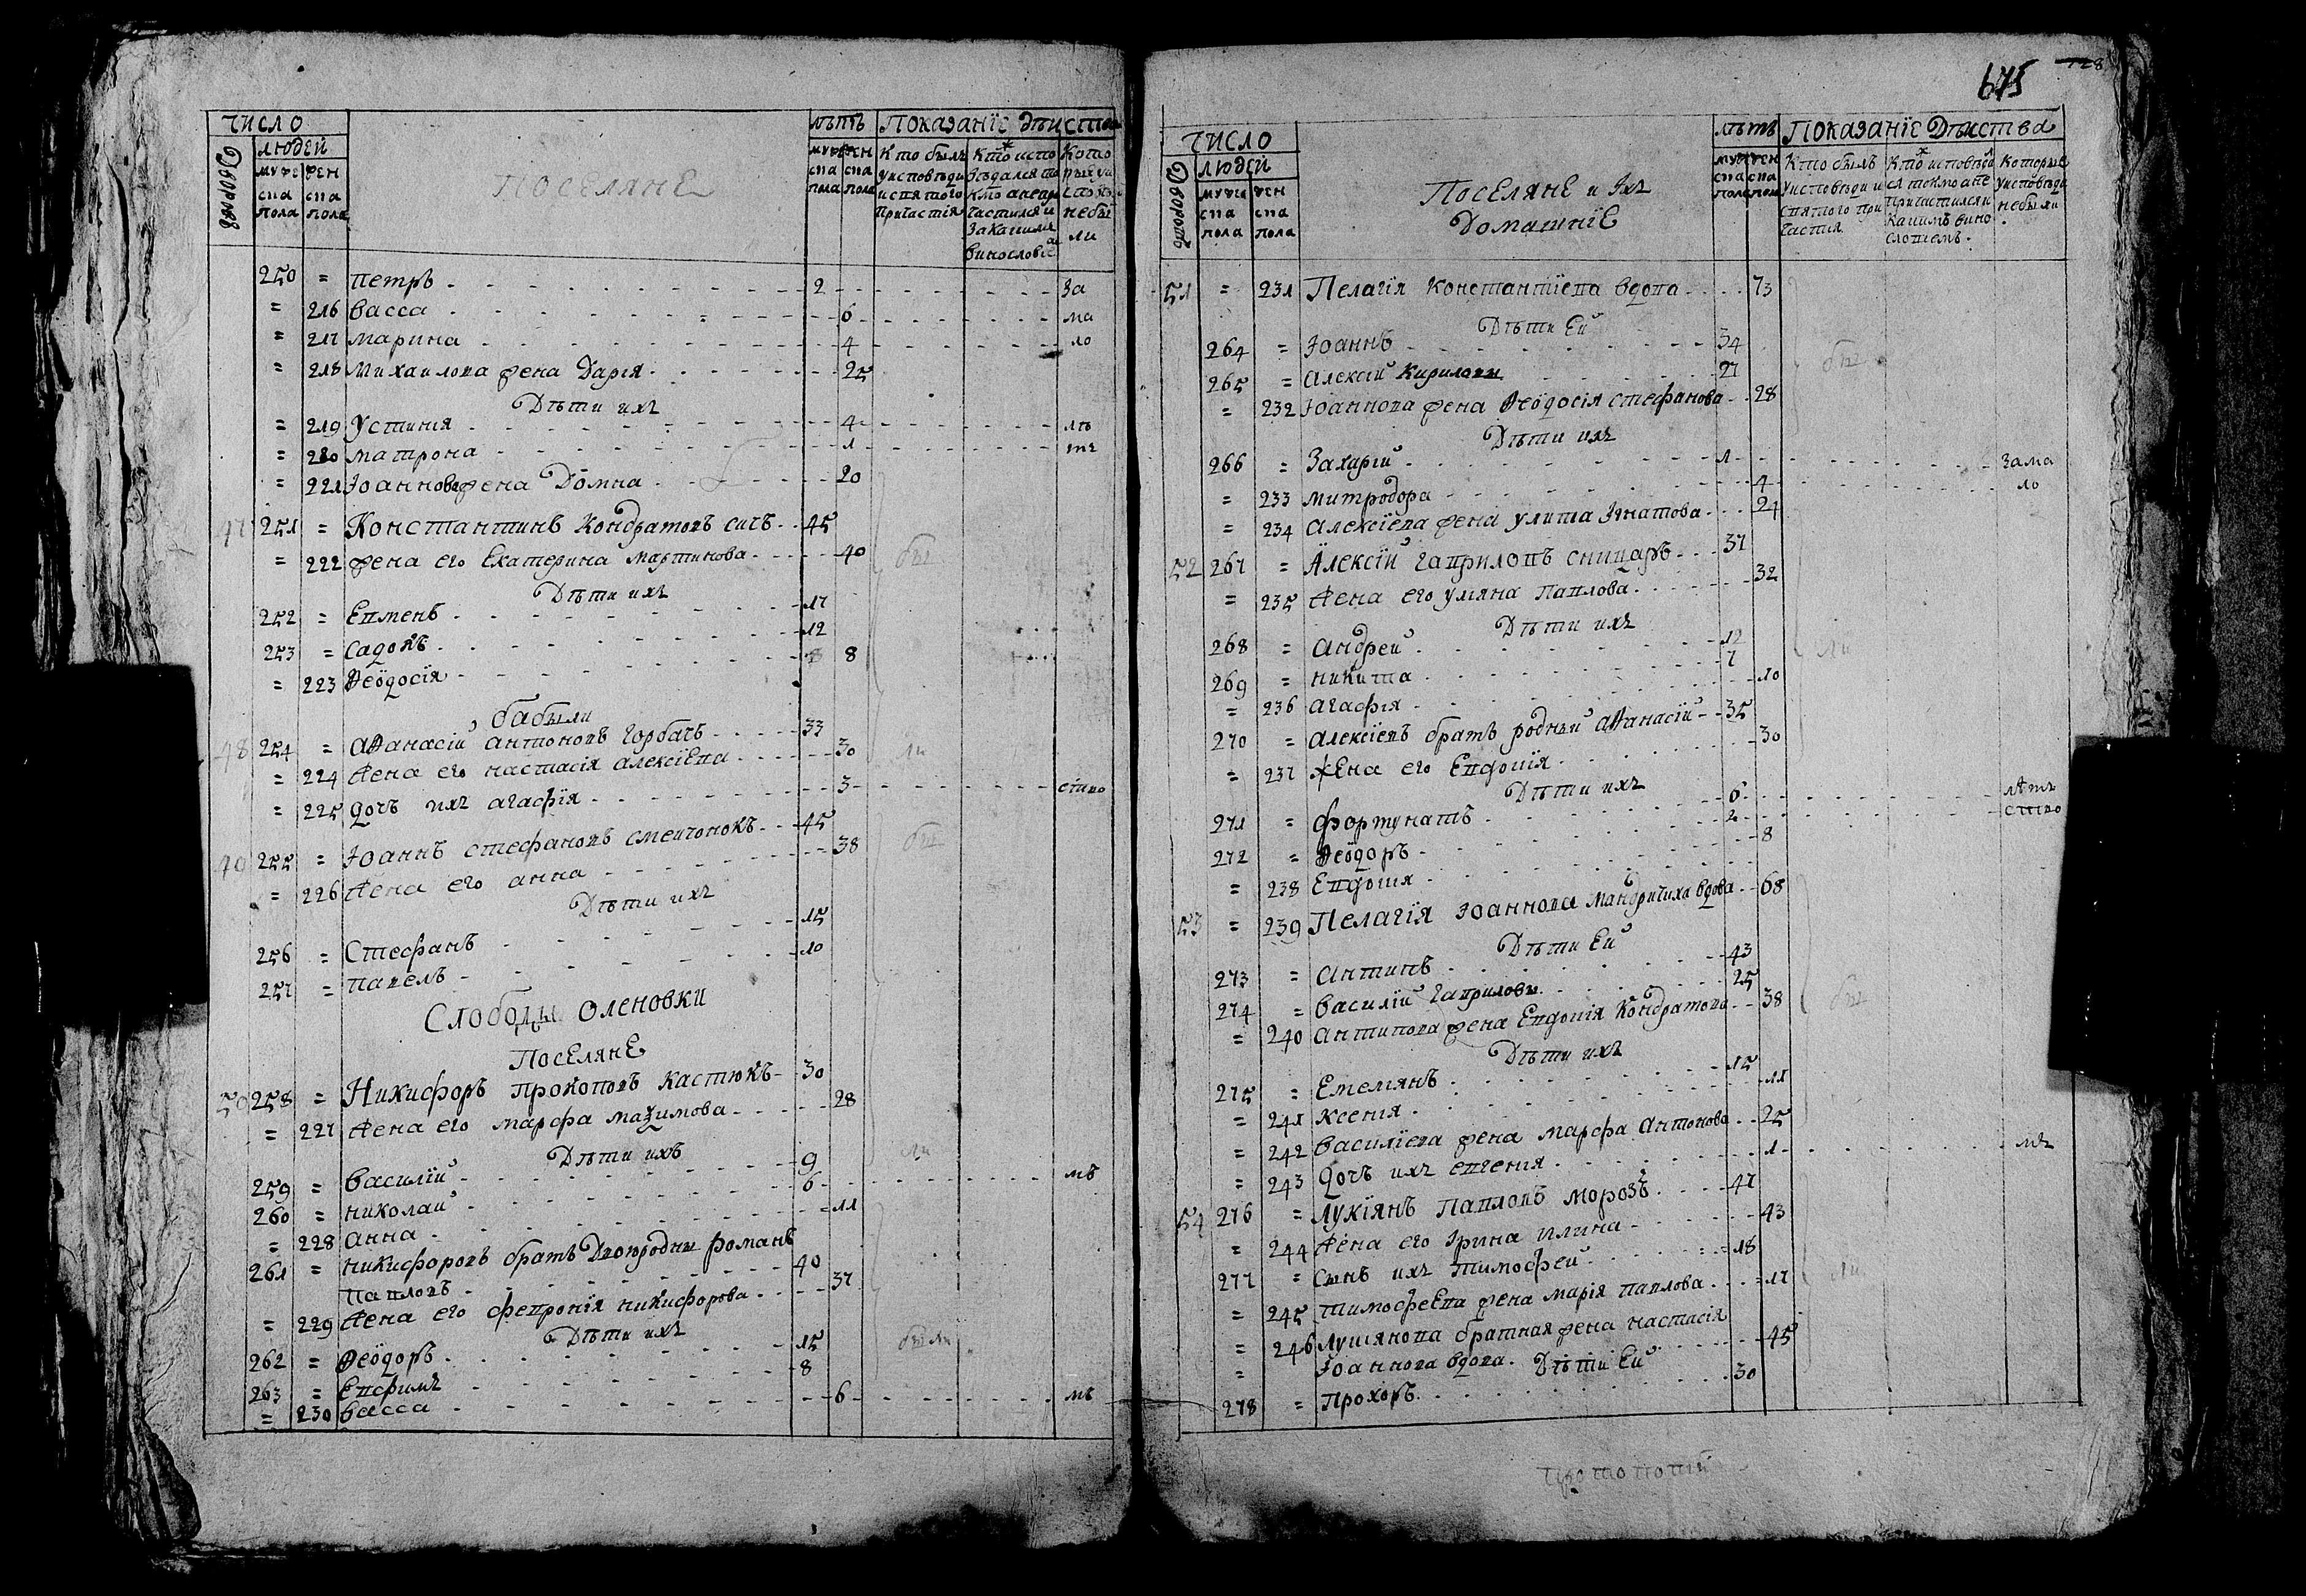 число
Поселяне
лѣтъ
Показанїе дѣиства
дворовъ
людей
муже
ска
пола
жен
ска
пола
муже
ска
пола
жен
ска
пола
Кто былъ
уисповѣди
исвятого
Причастїя
Кто испо
вѣдался то
кмо анепри
частился и
Закаким
винословїе
Кото
рые уи
споо
небы
ли
250 = Петръ 2 За
= 216 васса 6 ма
= 217 марина 4 ло
= 218 Михаилова жена Дарїя 25
Дѣти ихъ
= 219 Устинїя 4 лѣ
= 220 матрона 1 тъ
= 221 Іоаннова жена Домна 20
47 251 = Константинъ Кондратовъ сичъ 45
= 222 жена его Екатерина Мартинова 40 бы
Дѣти ихъ
252 = Евменъ 17
253 = Садокъ 12
= 223 Ѳеодосїя 8
бабыли
48 254 = Аѳанасїй антоновъ горбачъ 33
= 224 Жена его настасїя алексїева 30 ли
= 225 дочъ ихъ агафїя 3 ство
49 255 = Іоаннъ стефановъ смеичонокъ 45 бы
= 226 Жена его анна 38
Дѣти ихъ
256 = Стефанъ 15
257 = павелъ 10
Слободы Оленовки
Поселяне
50 258 = Никифоръ Прокоповъ Кастюкъ 30
= 227 Жена его марфа маѯимова 28
Дѣти ихъ
259 = василїй 9 ли
260 = николай 6 мъ
= 228 анна 11
261 = никифоровъ братъ Двоюродны романъ
павловъ 40
= 229 Жена его февронїя никифорова 37
Дѣти ихъ
262 = Ѳеодоръ 15 были
263 = Евфимъ 8
= 230 васса 6 мъ
675
128
число
Поселяне и Ихъ
Домашнїе
лѣтъ
Показанїе Дѣиства
дворовъ
людей
муже
ска
пола
жен
ска
пола
муж
ска
пола
жен
ска
пола
Кто былъ
уисповѣди и
святого при
частия
Кто исповѣдал
ся токмо ане
Причастился и
Какимъ вино
словїемъ.
Которые
уисповѣди
небыли
51 = 231 Пелагїя Константїева вдова 73
Дѣти Ей
264 = Іоаннъ 34 бы
265 = Алексїй Кириловы 27
= 232 Іоаннова жена Ѳеодосїя стефанова 28
Дѣти ихъ
266 = Захарїй 1 Зама
= 233 митродора 4 ло
= 234 алексїева жена улита Игнатова 24
52 267 = Алексїй гавриловъ сницаръ 37
= 235 Жена его улїяна павлова 32
Дѣти ихъ
268 = андрей 12 ли
269 = никита 7
= 236 агафїя 10
270 = алексїевъ братъ родный аѳанасїй 35
= 237 Жена его Евдокїя 30
Дѣти ихъ
271 = фортунатъ 6 лѣтъ
272 = Ѳеодоръ 2 ство
= 238 Евдокїя 8
53 = 239 Пелагїя Іоаннова Мандричиха вдова 68
Дѣти Ей
273 = антипъ 43
274 = василїй гавриловы 25 бы
= 240 антипова жена Евдокїя Кондратова 38
Дѣти ихъ
275 = Емелїянъ 15
= 241 ксенїя 11
= 242 василїева жена марфа антонова 25
= 243 дочъ ихъ евгенїя 1 мъ
54 276 = Лукїянъ павловъ морозъ 47
= 244 Жена его Ирина илина 43
277 = Сынъ ихъ тимофей 18
= 245 тимофеева жена марїя павлова 17 ли
= 246 Лукїянова братная жена настасїя
= Іоаннова вдова. Дѣти Ей 45
278 = Прохоръ 30
протопопїй